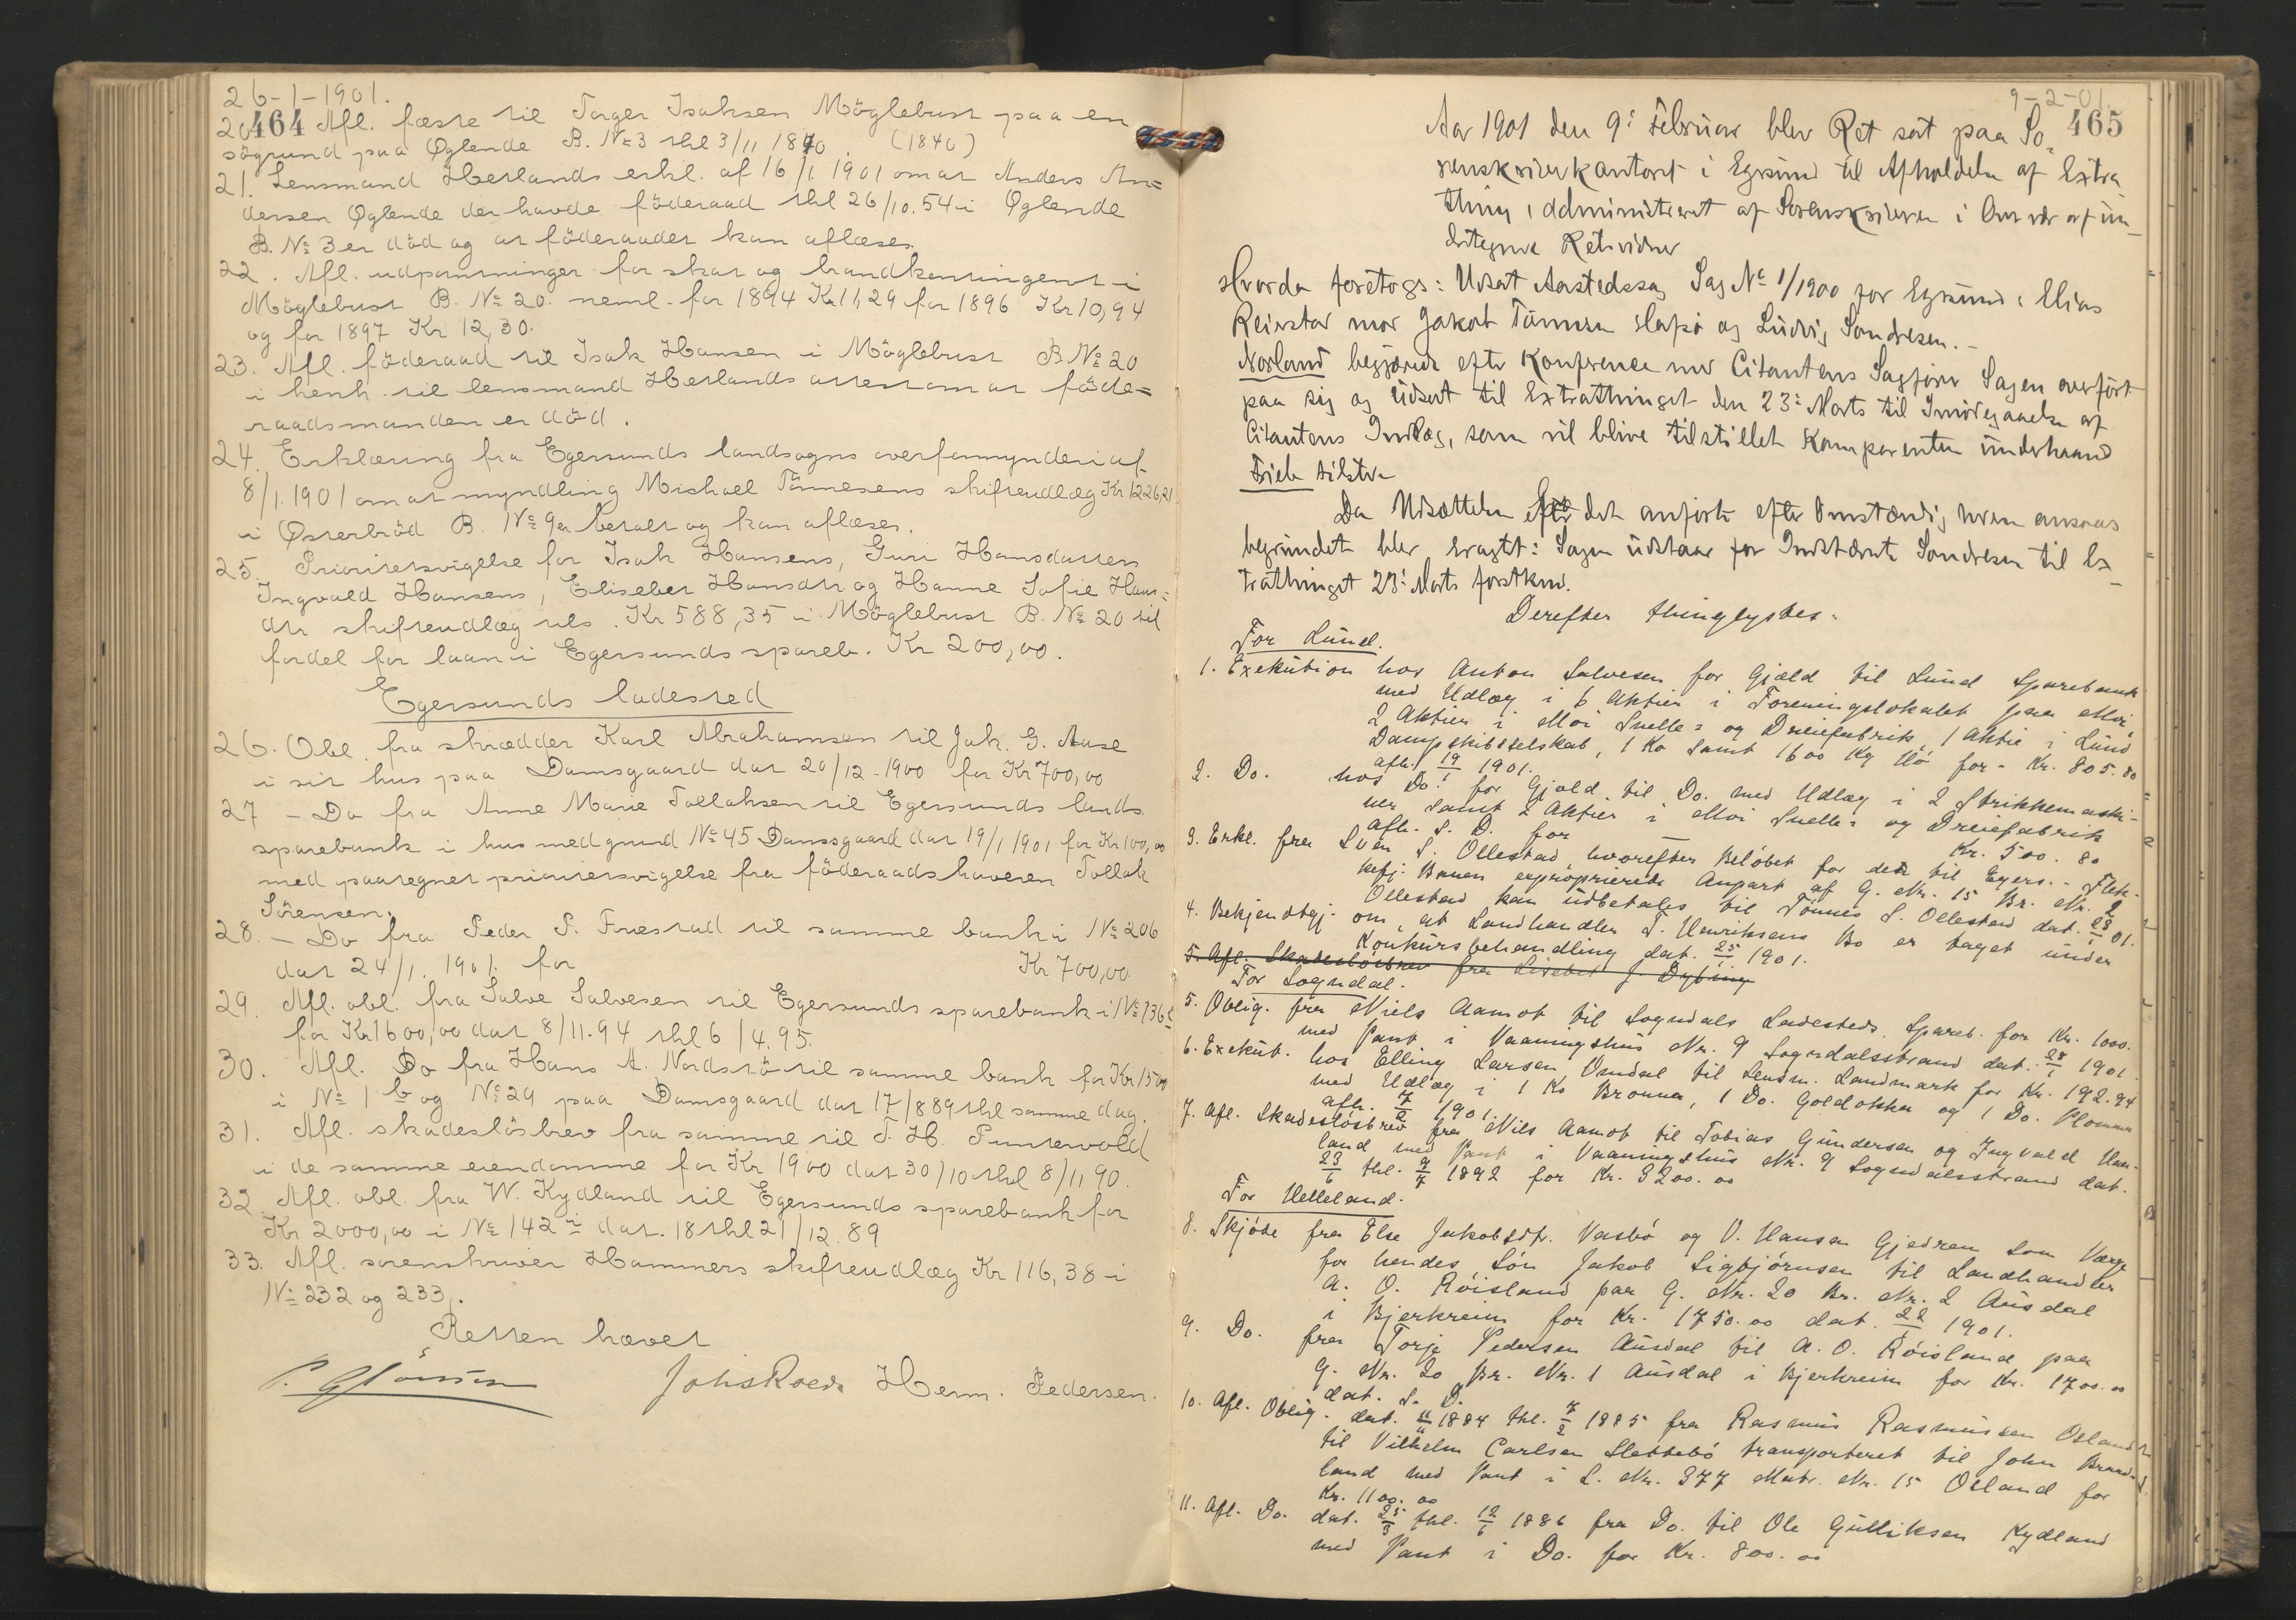 26-1-1901.
464
20. Afl. fæste til Torger Isaksen Möglebust paa en
sögrund paa Øglende B. No 3 thl 3/11 1840. (1840)
21. Lensmand Hetlands erkl. af 16/1 1901 om at Anders An=
dersen Øglende der havde föderaad thl 26/10.54 i Øglende
B. No 3 er död og at föderaadet kan aflæses.
22. Afl. udpantninger for skat og brandkontingent i
Möglebust B. No 20. neml. for 1894 Kr 11,29 for 1896 Kr 10,94
og for 1897 Kr 12,30.
23. Afl. föderaad til Isak Hansen i Möglebust B No 20
i henh. til lensmand Hetlands attest om at föde=
raadsmanden er död.
24. Erklæring fra Egersunds landsogns overformynderi af
8/1.1901 om at myndling Michael Tönnesens skifteudlæg Kr 1226,21
i Østerbröd B. No 9 er betalt og kan aflæses.
25. Prioritetsvigelse for Isak Hansens, Guri Hansdatters
Ingvald Hansens, Elisebet Hansdtr og Hanne Sofie Hans=
dtr skifteudlæg tils. Kr 588,35 i Möglebust B. No 20 til
fordel for laan i Egersunds spareb. Kr 200,00.
Egersunds ladested
26. Obl. fra skrædder Karl Abrahamsen til Jak. G. Aase
i sit hus paa Damsgaard dat 20/12-1900 for Kr 700,00
27 - Do fra Anne Marie Tollaksen til Egersunds lands
sparebank i hus med grund No 45 Damsgaard dat 19/1 1901 for Kr 100,00
med paategnet prioritetsvigelse fra föderaadshaveren Tollak
Sörensen.
28. - Do fra Peder P. Fuestad til samme bank i No 206
dat 24/1. 1901. for Kr 700,00
29. Afl. obl. fra Salve Salvesen til Egersunds sparebank i No 136
for Kr 1600,00 dat 8/11.94 thl 6/4.95.
30. Afl. Do fra Hans A. Nordstö til samme bank for Kr 1500
i No 1 b og No 29 paa Damsgaard dat 17/8 89 thl samme dag.
31. Afl. skadeslösbrev fra samme til T. H. Puntervold
i de samme eiendomme for Kr 1900 dat 30/10 thl 8/11 90.
32. Afl. obl. fra W. Kydland til Egersunds sparebank for
Kr 2000,00 i No 142 dat. 18 thl 21/12.89
33. Afl. sorenskriver Hammers skifteudlæg Kr 116,38 i
No 232 og 233.
Retten hævet
Johs Roed Herm. Pedersen.
9-2-01.
465
Aar 1901 den 9. Februar blev Ret sat paa So-
renskriverkontoret i Egersund til Afholdelse af Extra
thing, administreret af Sorenskriveren i Overvær af un-
dertegnede Retsvidner
Hvorda foretoges: Udsat Aastedssag Sag No 1/1900 for Egersund: Elias
mod Jakob Tönnesen og Ludvig Sondresen.-
Norland begjærede efter Konference med Citantens Sagförer Sagen overfört
paa sig og udsat til Extrathinget den 23. Marts til Imödegaaelse af
Citantens Indlæg, som vil blive tilstillet Komparenten underhaand
tilstede
Da Udsættelse efter det anförte efter Omstændighederne ansaaes
begrundet blev eragtet: Sagen udstaar for Indstævnte Sondresen til Ex-
trathinget 23. Marts förstkmd.
Derefter thinglystes:
For Lund.
1. Exekution hos Anton Salvesen for Gjæld til Lund Sparebank
med Udlæg i 6 Aktier i Foreningslokalet paa Moi,
2 Aktier i Moi Snelle- og Dreiefabrik, 1 Aktie i Lund
Dampskibsselskab, 1 Ko samt 1600 Kg Hö for - Kr. 805.80
afh. 19/1 1901.
2. Do. hos Do. for Gjæld til Do. med Udlæg i 2 Strikkemaski-
ner samt 2 Aktier i Moi Snelle- og Dreiefabrik
afh. S. D. for Kr. 500.80
3. Erkl. fra Sven S. Ollestad, hvorefter Belöbet for det til Egers.-Flek-
kefj. Banen exproprierede Anpart af G. Nr. 15 Br. Nr. 2
Ollestad kan udbetales til Tönnes S. Ollestad dat. 23/1 01.
4. Bekjendtgj. om, at Landhandler T. Henriksens Bo er taget under
Konkursbehandling dat. 25/1 1901.
5. Afl. Skadeslösbrev fra Lisebet J. Dybing
For Sogndal.
5. Oblig. fra Niels Aamot til Sogndals Ladesteds Spareb. for Kr. 1000.
med Pant i Vaaningshus Nr. 9 Sogndalsstrand dat. 28/1 1901.
6. Exekut. hos Elling Larsen Omdal til Lensm. Landmark for Kr. 192.94
med Udlæg i 1 Ko Brouna, 1 Do. Goldokka og 1 Do. Plomma
afh. 7/2 1901.
7. Afl. Skadeslösbrev fra Nils Aamot til Tobias Gundersen og Ingvald Hau-
land med Pant i Vaaningshus Nr. 9 Sogndalsstrand dat.
23/6 thl. 9/7 1892 for Kr. 3200.00
For Helleland.
8. Skjöde fra Else Jakobsdtr. Vasbö og V. Hansen Gjedrem som Værge
for hendes Sön Jakob Sigbjörnsen til Landhandler
A. O. Röisland paa G. Nr. 20 Br. Nr. 2 Ausdal
i Bjerkreim for Kr. 1750.00 dat. 22/1 1901.
9. Do. fra Torje Pedersen Ausdal til A. O. Röisland paa
G. Nr. 20 Br. Nr. 1 Ausdal i Bjerkreim for Kr. 1700.00
dat. S. D.
10. Afl. Oblig. dat. 1884 thl. 7/2 1885 fra Rasmus Rasmussen Osland
til Vilhelm Carlsen Slettebö transporteret til John
land med Pant i L. Nr. 377 Matr. Nr. 15 Osland for
Kr. 1100.00
11. Afl. Do. dat. 25/3 thl. 12/6 1886 fra Do. til Ole Gulliksen Kydland
med Pant i Do. for Kr. 800.00